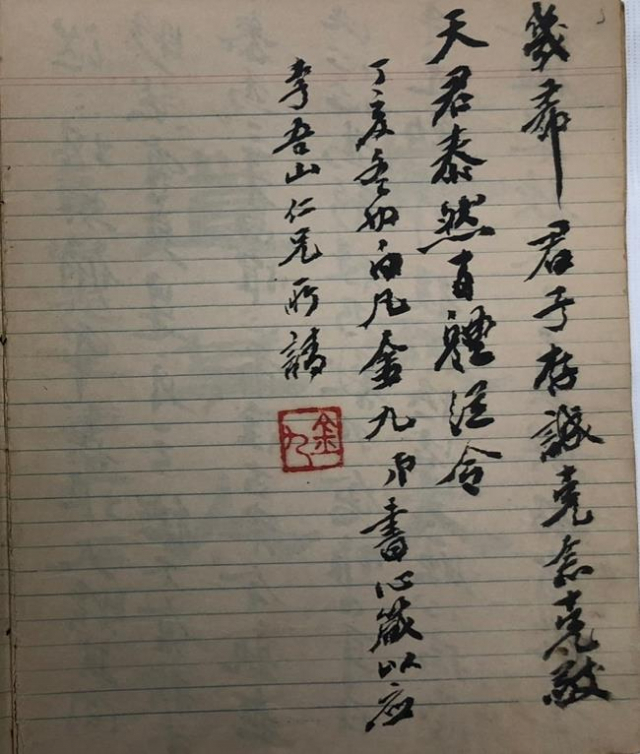 幾希君子存誠克念克敬
天君泰然百體從令
丁亥冬初白凡金九書心箴以应
李吾山仁兄所請
金九